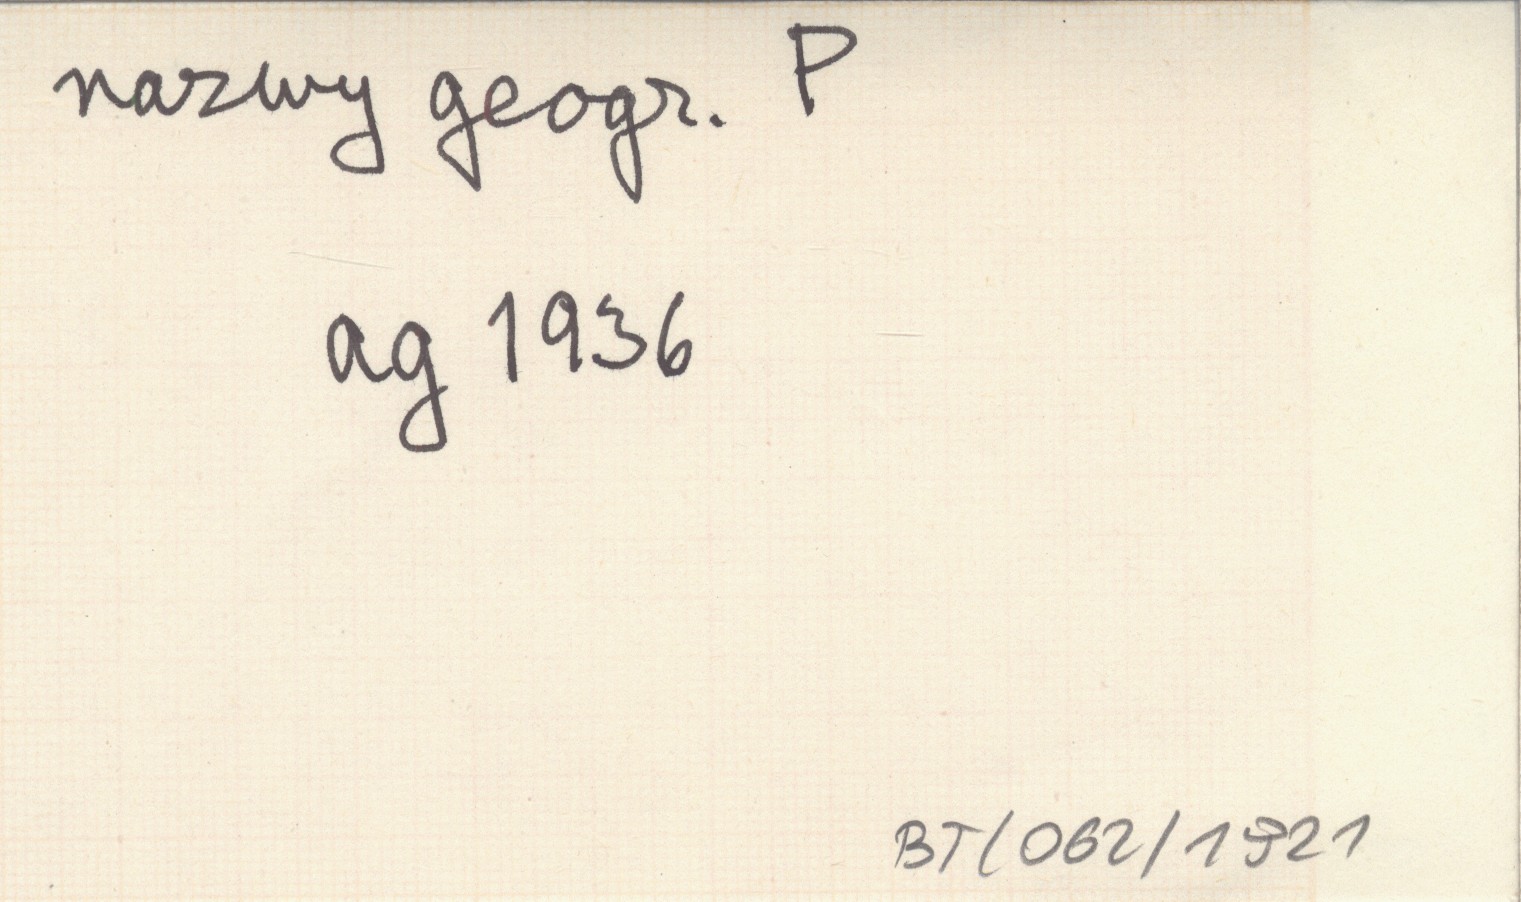 nazwy geogr. P
ag 1936
BT/062/1921